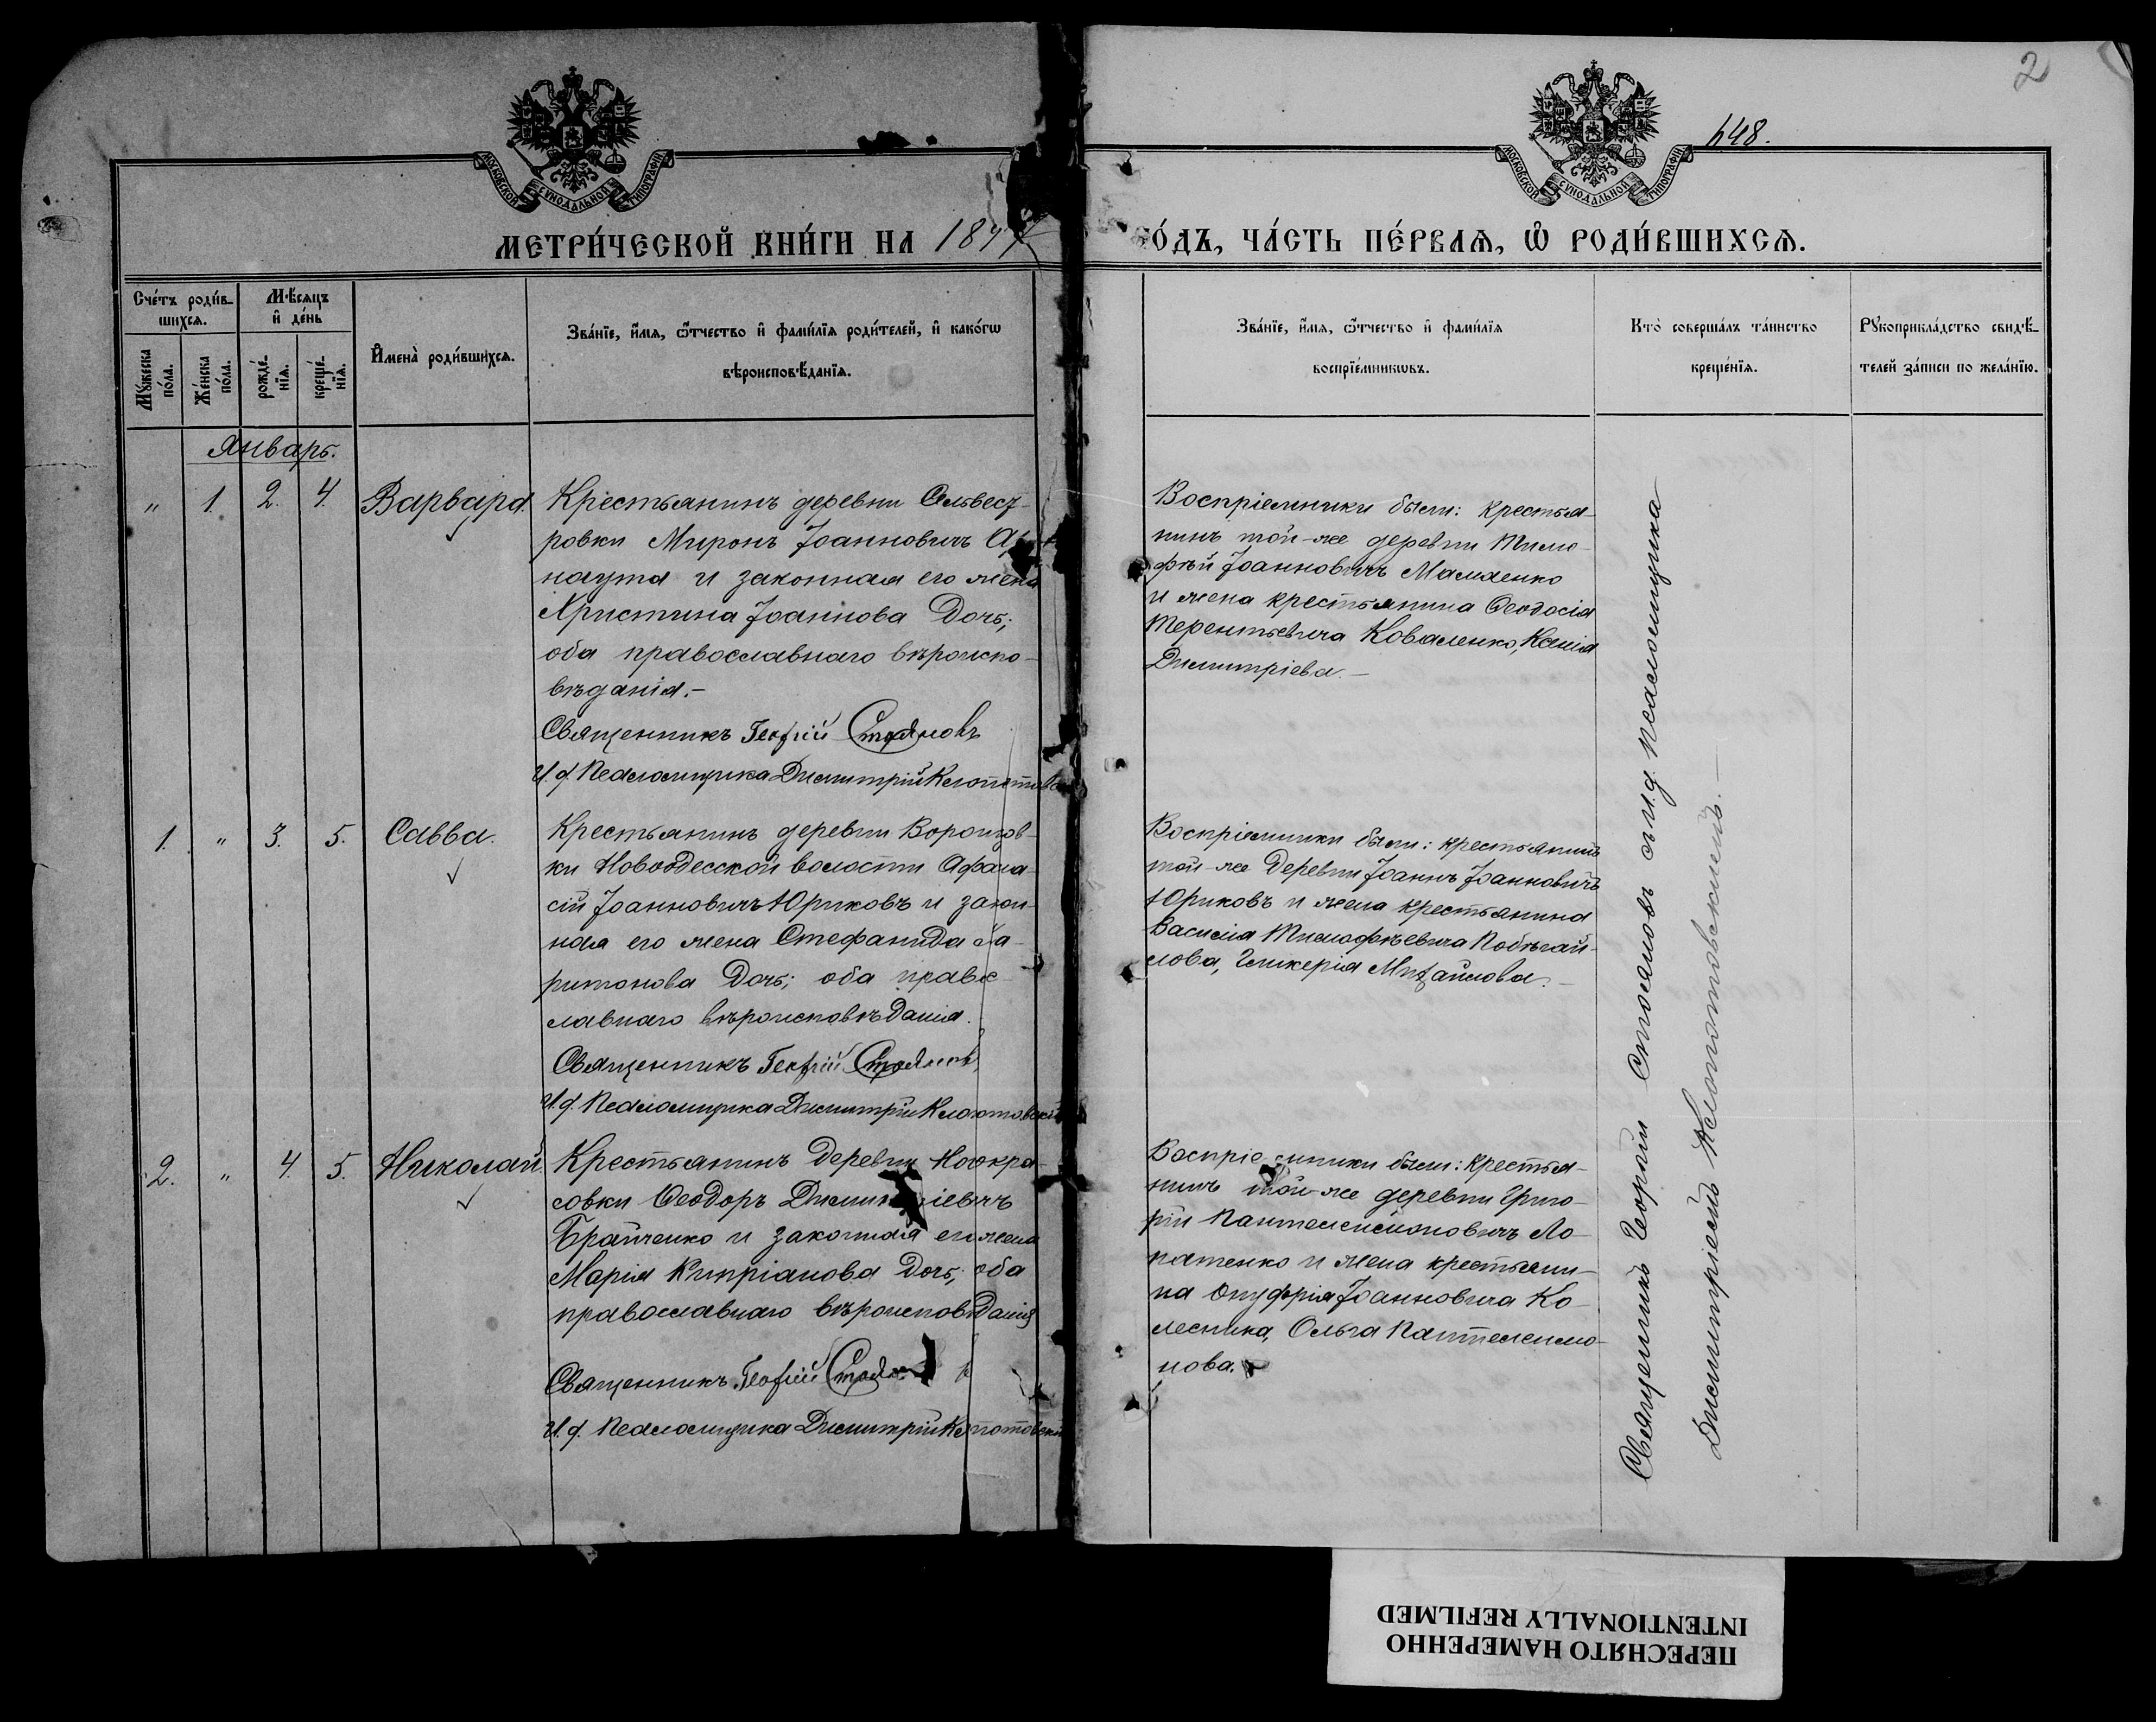 2
648.
МОСКОВСКОЙ СУНОДАЛЬНОЙ ТИПОГРАФІИ
МОСКОВСКОЙ СУНОДАЛЬНОЙ ТИПОГРАФІИ
МЕТРИ́ЧЕСКОЙ КНИ́ГИ НА 1897
О́ДЪ, ЧА́СТЬ ПЕ́РВАЯ, Ѡ҆ РОДИ́ВШИХСЯ.
Сче́тъ роди́в-
шихся.
Мѣ́сяцъ
и҆ де́нь
Му́жеска по́ла.
Же́нска по́ла.
рожде́-
нїя.
креще́-
нїя.
И҆мена̀ роди́вшихся.
Зва́нїе, и҆́мя, ѻ҆́тчество и҆ фами́лїя роди́телей, и҆ како́гѡ
вѣроисповѣ́данїя.
Зва́нїе, и҆́мя, ѻ҆́тчество и҆ фами́лїя
воспрїе́мникѡвъ.
Кто̀ соверша́лъ та́инство
креще́нїя.
Рꙋкоприкла́дство свидѣ́-
телей за́писи по жела́нїю.
Январь.
" 1. 2. 4. Варвара.
Крестьянинъ деревни Сельвест-
ровки Миронъ Іоанновичъ Ар-
наута и законная его жена
Христина Іоаннова дочь;
оба православнаго вѣроиспо-
вѣданія.-
Священникъ Георгій Стояновъ
И. д. Псаломщика Димитрій Клопотовс
Воспріемники были: крестья-
нинъ той-же деревни Тимо-
фѣй Іоанновичъ Мамаенко
и жена крестьянина Ѳеодосія
Терентьевича Коваленко, Ксенія
Димитріева.-
1. " 3. 5. Савва.
Крестьянинъ деревни Воронцов-
ки Новоодесской волости Афана-
сій Іоанновичъ Юриковъ и закон-
ная его жена Стефанида Ха-
ритонова дочь; оба право-
славнаго вѣроисповѣданія.
Священникъ Георгій Стояновъ
И. д. Псаломщика Димитрій Клопотовскій
Воспріемники были: крестьянинъ
той-же деревни Іоаннъ Іоанновичъ
Юриковъ и жена крестьянина
Василія Тимофѣевича Побѣгай-
лова, Гликерія Михайлова.-
2. " 4. 5. Николай.
Крестьянинъ деревни Новокра-
совки Ѳеодоръ Димитріевичъ
Брайченко и законная его жена
Марія Кипріанова дочь; оба
православнаго вѣроисповѣданія
Священникъ Георгій Стоян ъ
И. д. Псаломщика Димитрій Клопотовскій
Воспріемники были: крестья-
нинъ той-же деревни Григо-
рій Пантелеимоновичъ Ло-
патенко и жена крестьяни-
на Онуфрія Іоанновича Ко-
лесника, Ольга Пантелеимо-
нова.
Священникъ Георгій Стояновъ съ и. д. псаломщика
Димитріемъ Клопотовскимъ.-
ПЕРЕСНЯТО НАМЕРЕННО
INTENTIONALLY REFILMED